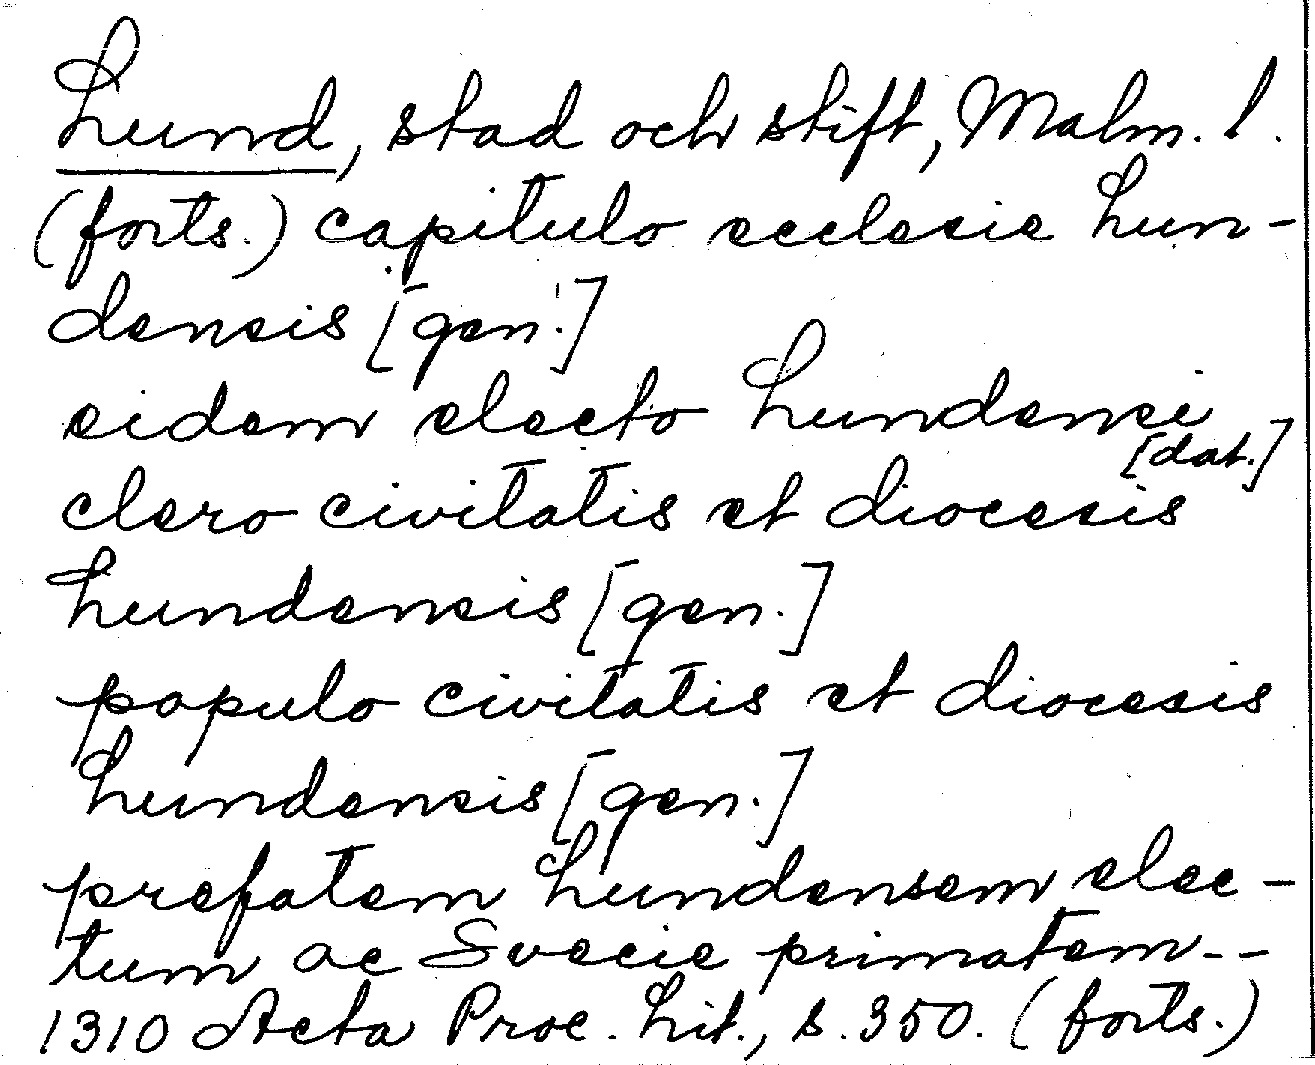 Lund, stad och stift, Malm. l.
(forts.) capitulo ecclesie Lun-
densis [gen.]
eidem electo Lundensi
[dat.]
clero civitatis et diocesis
Lundensis [gen.]
populo civitatis et diocesis
Lundensis [gen.]
prefatem Lundensem elec-
tum ac Svecie primatem--
1310 Acta Proc. Lit., s. 350. (forts.)